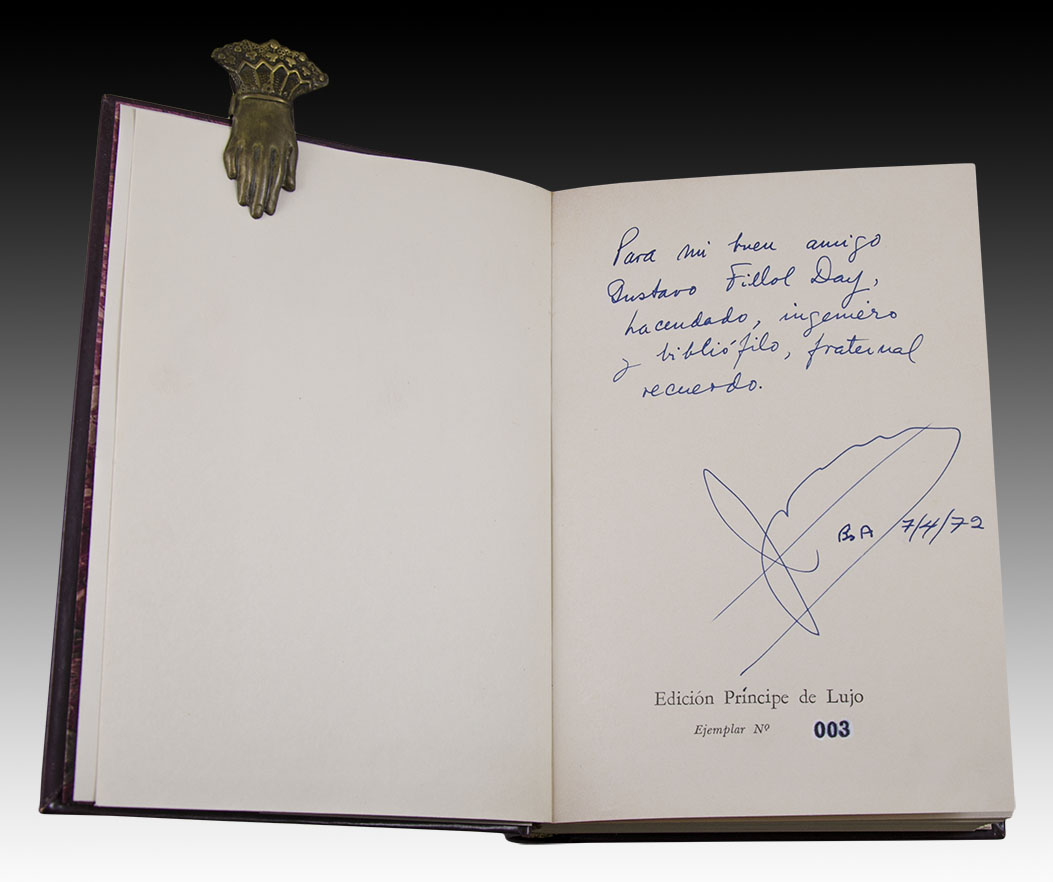 Para mi buen amigo
Gustavo Fillol Day,
hacendado, ingeniero
y bibliófilo, fraternal
recuerdo.
BsA 7/4/72
Edición Príncipe de Lujo
Ejemplar Nº 003